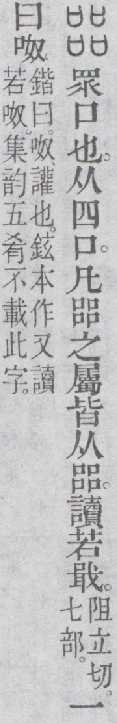 㗊 眾口也。从四口。凡㗊之屬皆从㗊。讀若戢。阻立切。七部。一
曰呶 鍇曰。呶、讙也。鉉本作又讀若呶。集韵五肴不載此字。